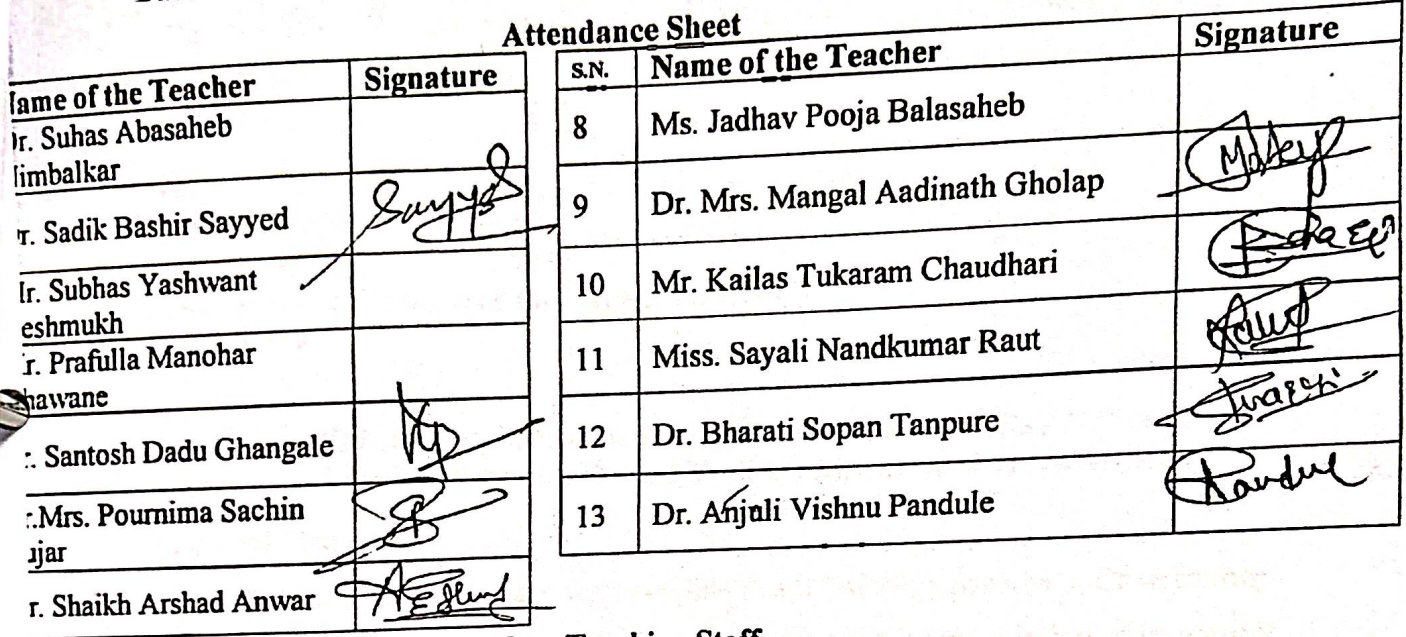 Attendance Sheet
Name of the Teacher Signature
Dr. Suhas Abasaheb
Nimbalkar
r. Sadik Bashir Sayyed Sayyed
Mr. Subhas Yashwant
eshmukh
r. Prafulla Manohar
hawane
. Santosh Dadu Ghangale
.Mrs. Pournima Sachin
ujar
r. Shaikh Arshad Anwar
S.N. Name of the Teacher Signature
8 Ms. Jadhav Pooja Balasaheb
9 Dr. Mrs. Mangal Aadinath Gholap
10 Mr. Kailas Tukaram Chaudhari
11 Miss. Sayali Nandkumar Raut
12 Dr. Bharati Sopan Tanpure
13 Dr. Anjali Vishnu Pandule